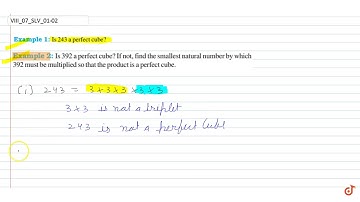 VIII_07_SLV_01-02
Example 1: Is 243 a perfect cube?
Example 2: Is 392 a perfect cube? If not, find the smallest natural number by which
392 must be multiplied so that the product is a perfect cube.
(i) 243 = 3×3×3×3×3
3×3 is not a triplet
243 is not a perfect cube